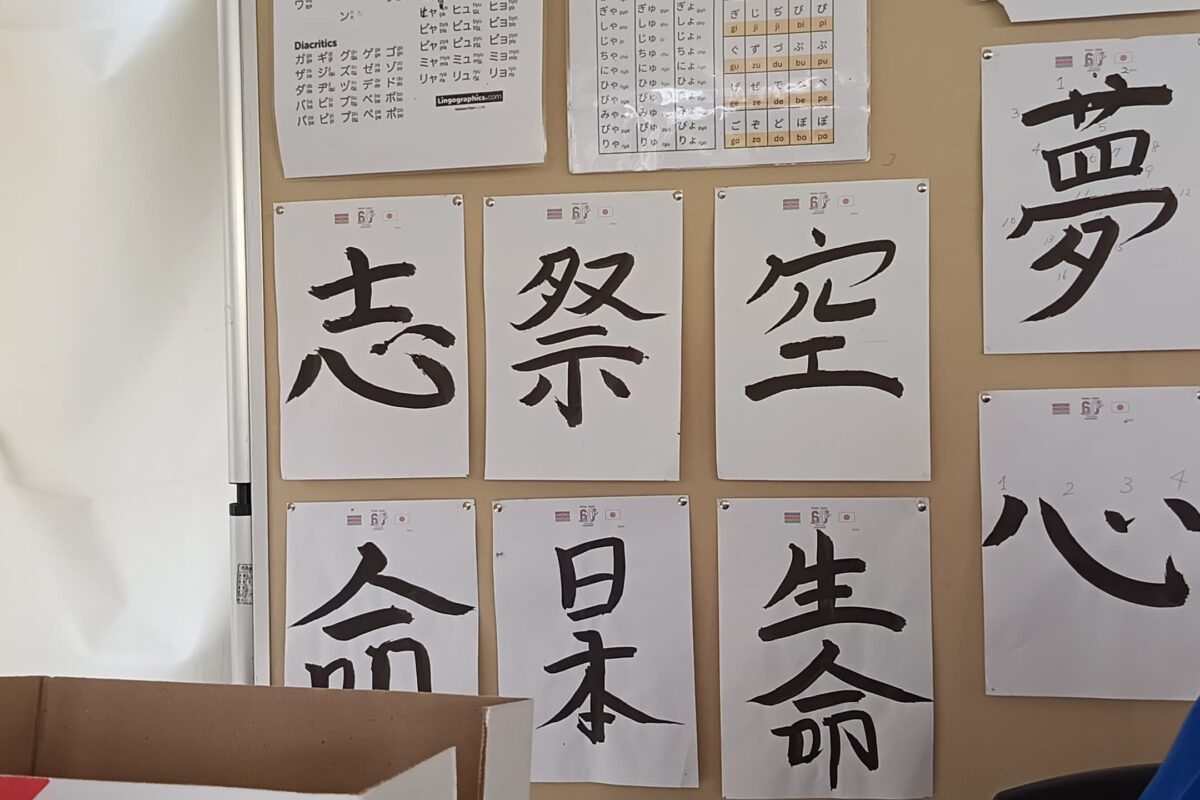 ワ
ン
ヒャ ヒュ ヒョ
ビャ ビュ ビョ
ピャ ピュ ピョ
ミャ ミュ ミョ
リャ リュ リョ
Diacritics
ガ ギ グ ゲ ゴ
ザ ジ ズ ゼ ゾ
ダ ヂ ヅ デ ド
バ ビ ブ ベ ボ
パ ピ プ ペ ポ
Lingographics.com
ぎゃ ぎゅ ぎょ
しゃ しゅ しょ
じゃ じゅ じょ
ちゃ ちゅ ちょ
にゃ にゅ にょ
ひゃ ひゅ ひょ
びゃ びゅ びょ
みゃ みゅ みょ
ぴゃ ぴゅ ぴょ
りゃ りゅ りょ
ぎ じ ぢ び ぴ
gi ji ji bi pi
ぐ ず づ ぶ ぷ
gu zu du bu pu
げ ぜ で べ ぺ
ge ze de be pe
ご ぞ ど ぼ ぽ
go zo do bo po
夢
志
祭
空
心
1 2 3 4
命
日本
生命